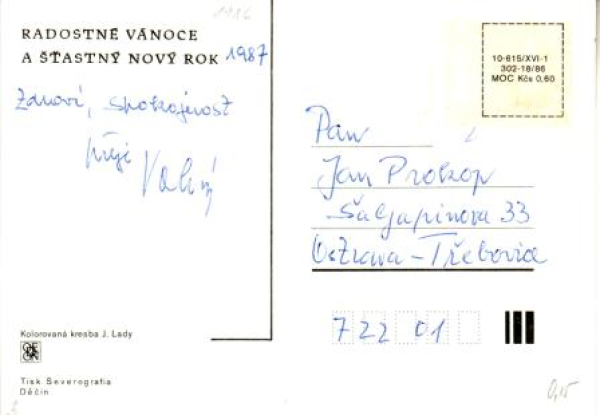 1986
RADOSTNÉ VÁNOCE
A ŠŤASTNÝ NOVÝ ROK 1987
Zdraví, spokojnost
přeji
10-615/XVI-1
302-18/86
MOC Kčs 0,60
Pan
Jan Prokop
Šaljapinova 33
Ostrava-Třebovice
722 01
Kolorovaná kresba J. Lady
Tisk Severografia
Děčín
0,15